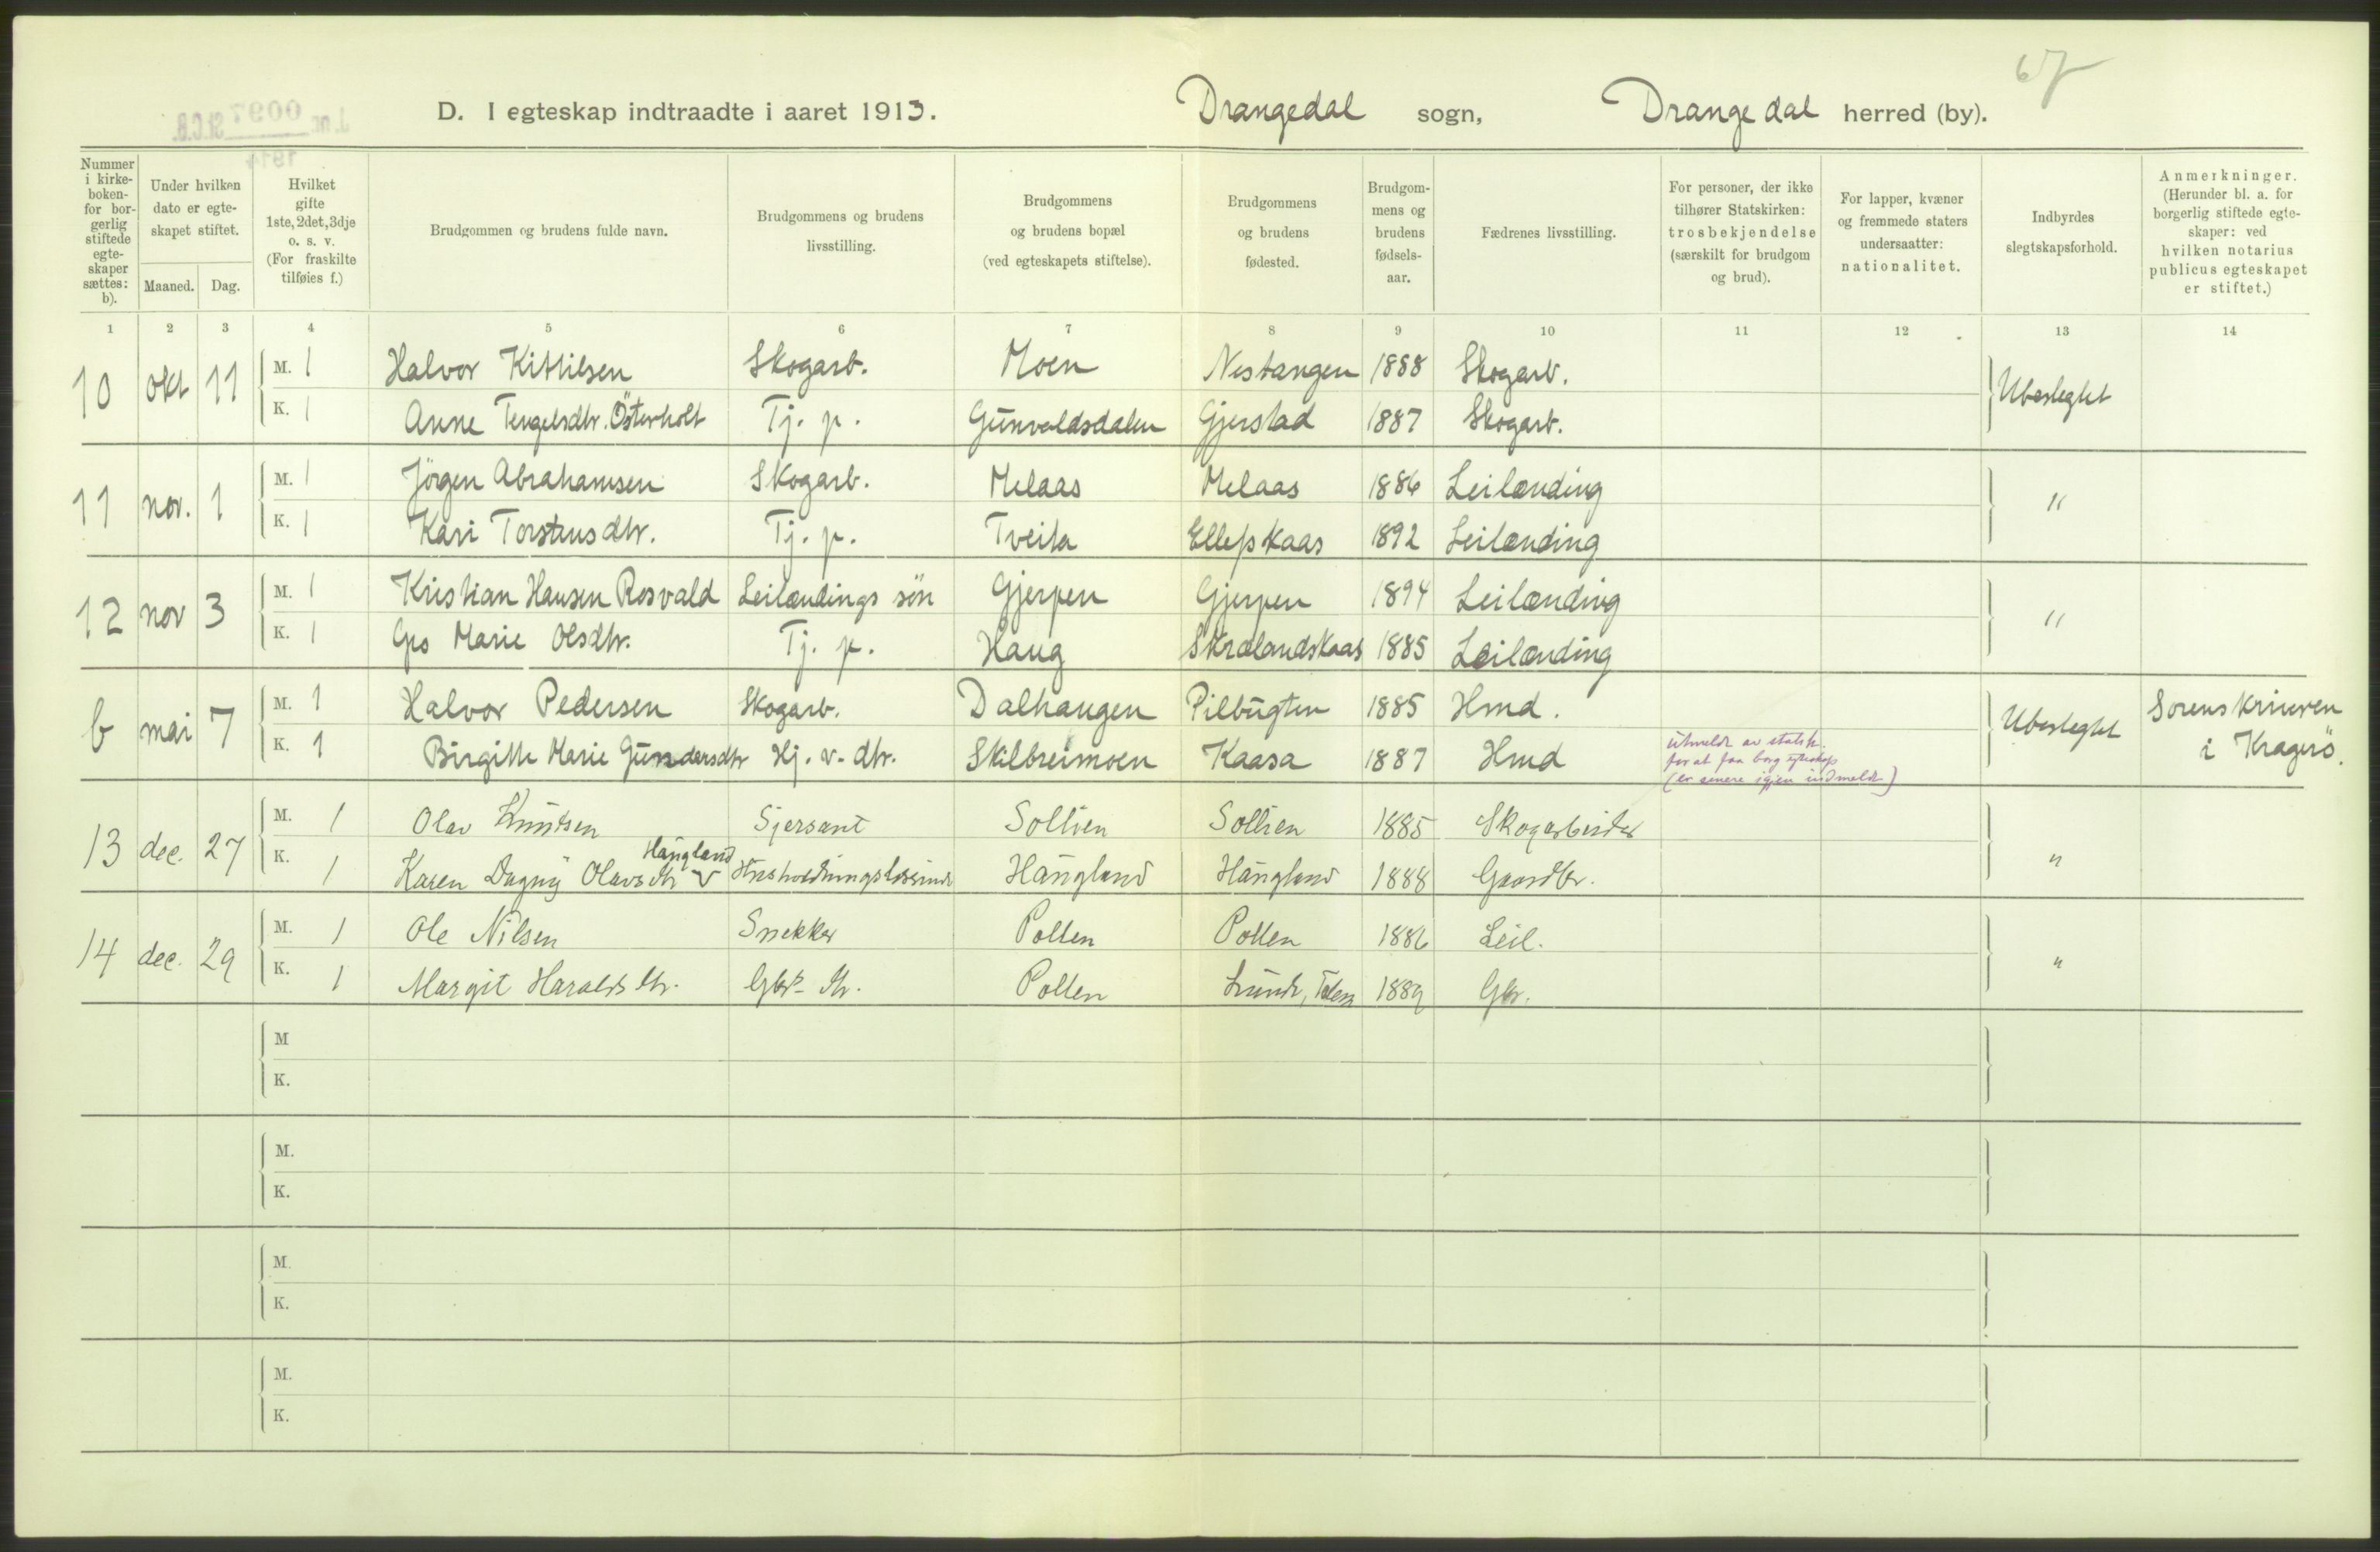 67
D. I egteskap indtraadte i aaret 1913. Drangedal sogn, Drangedal herred (by).
J.nr. 0097 St.C.B.
1914
Nummer i kirkeboken- for borgerlig stiftede egteskaper sættes: b).
Under hvilken dato er egteskapet stiftet.
Maaned. Dag.
Hvilket gifte 1ste, 2det, 3dje o. s. v. (For fraskilte tilføies f.)
Brudgommen og brudens fulde navn.
Brudgommens og brudens livsstilling.
Brudgommens og brudens bopæl (ved egteskapets stiftelse).
Brudgommens og brudens fødested.
Brudgommens og brudens fødselsaar.
Fædrenes livsstilling.
For personer, der ikke tilhører Statskirken: trosbekjendelse (særskilt for brudgom og brud).
For lapper, kvæner og fremmede staters undersaatter: nationalitet.
Indbyrdes slegtskapsforhold.
Anmerkninger. (Herunder bl. a. for borgerlig stiftede egteskaper: ved hvilken notarius publicus egteskapet er stiftet.)
1 2 3 4 5 6 7 8 9 10 11 12 13 14
10 okt 11 M. 1 Halvor Kittilsen Skogarb. Moen Nestangen 1888 Skogarb. Ubeslegtet
K. 1 Anne Tengelsdtr. Österholt Tj. p. Gunvaldsdalen Gjerstad 1887 Skogarb.
11 nov. 1 M. 1 Jörgen Abrahamsen Skogarb. Melaas Melaas 1886 Leilænding "
K. 1 Kari Torstensdtr. Tj. p. Tveita Ellefskaas 1892 Leilænding
12 nov 3 M. 1 Kristian Hansen Rosvald Leilændings sön Gjerpen Gjerpen 1894 Leilænding "
K. 1 Gro Marie Olsdtr. Tj. p. Haug Skrælandskaas 1885 Leilænding
b mai 7 M. 1 Halvor Pedersen Skogarb. Dalhaugen Pilbugten 1885 Hmd. Ubeslegtet Sorenskriveren i Kragerö.
K. 1 Birgitte Marie Gundersdtr Hj. v. dtr. Skilbreimoen Kaasa 1887 Hmd utmeldt av statsk. for at faa borg egteskap (er senere igjen indmeldt)
13 dec. 27 M. 1 Olav Knutsen Sjersant Sollien Sollien 1885 Skogarbeider "
K. 1 Karen Dagny Olavsdtr Haugland Husholdningslærerinde Haugland Haugland 1888 Gaardbr.
14 dec. 29 M. 1 Ole Nilsen Snekker Pollen Pollen 1886 Leil. "
K. 1 Margit Haraldsdtr. Gbr. dtr. Pollen Lunde, Telem 1889 Gbr.
M
K.
M.
K.
M.
K.
M.
K.